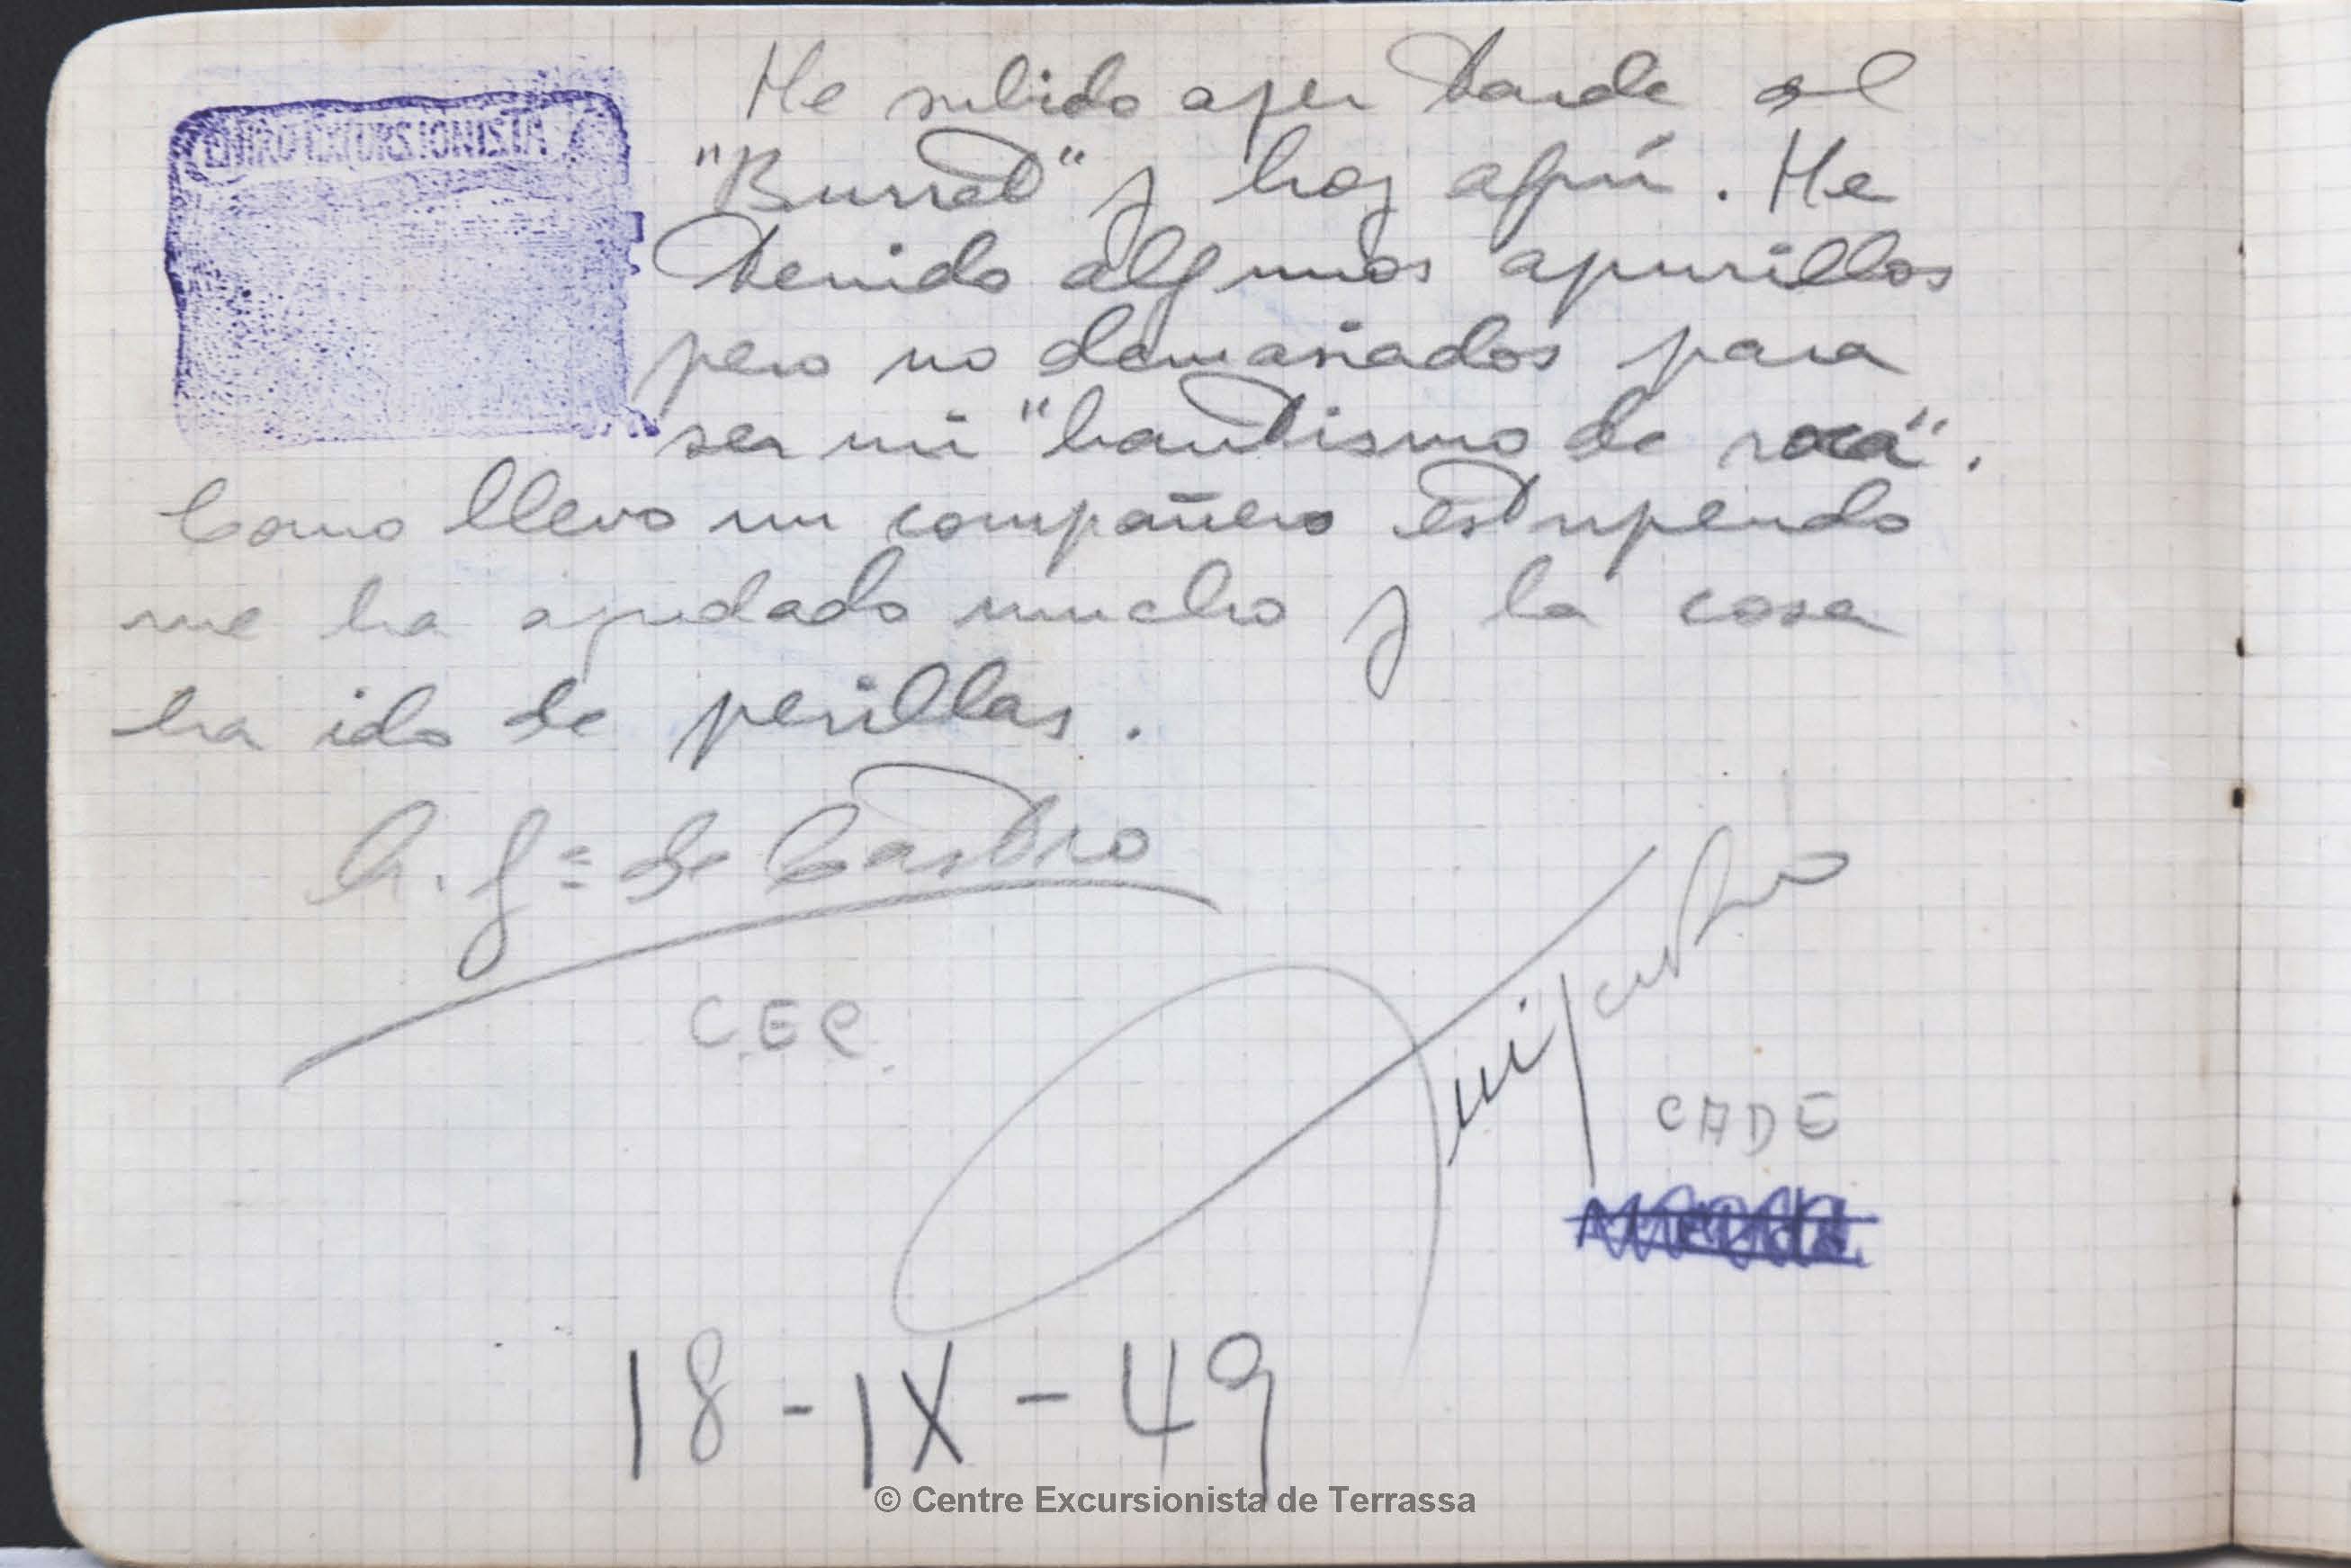 CENTRO EXCURSIONISTA
He subido ayer tarde al
"Burret" y hoy aquí. He
tenido algunos apurillos
pero no demasiados para
ser mi "bautismo de roca".
Como llevo un compañero estupendo
me ha ayudado mucho y la cosa
ha ido de perillas.
A. Gª de Castro
C.E.C.
CADE
18-IX-49
© Centre Excursionista de Terrassa